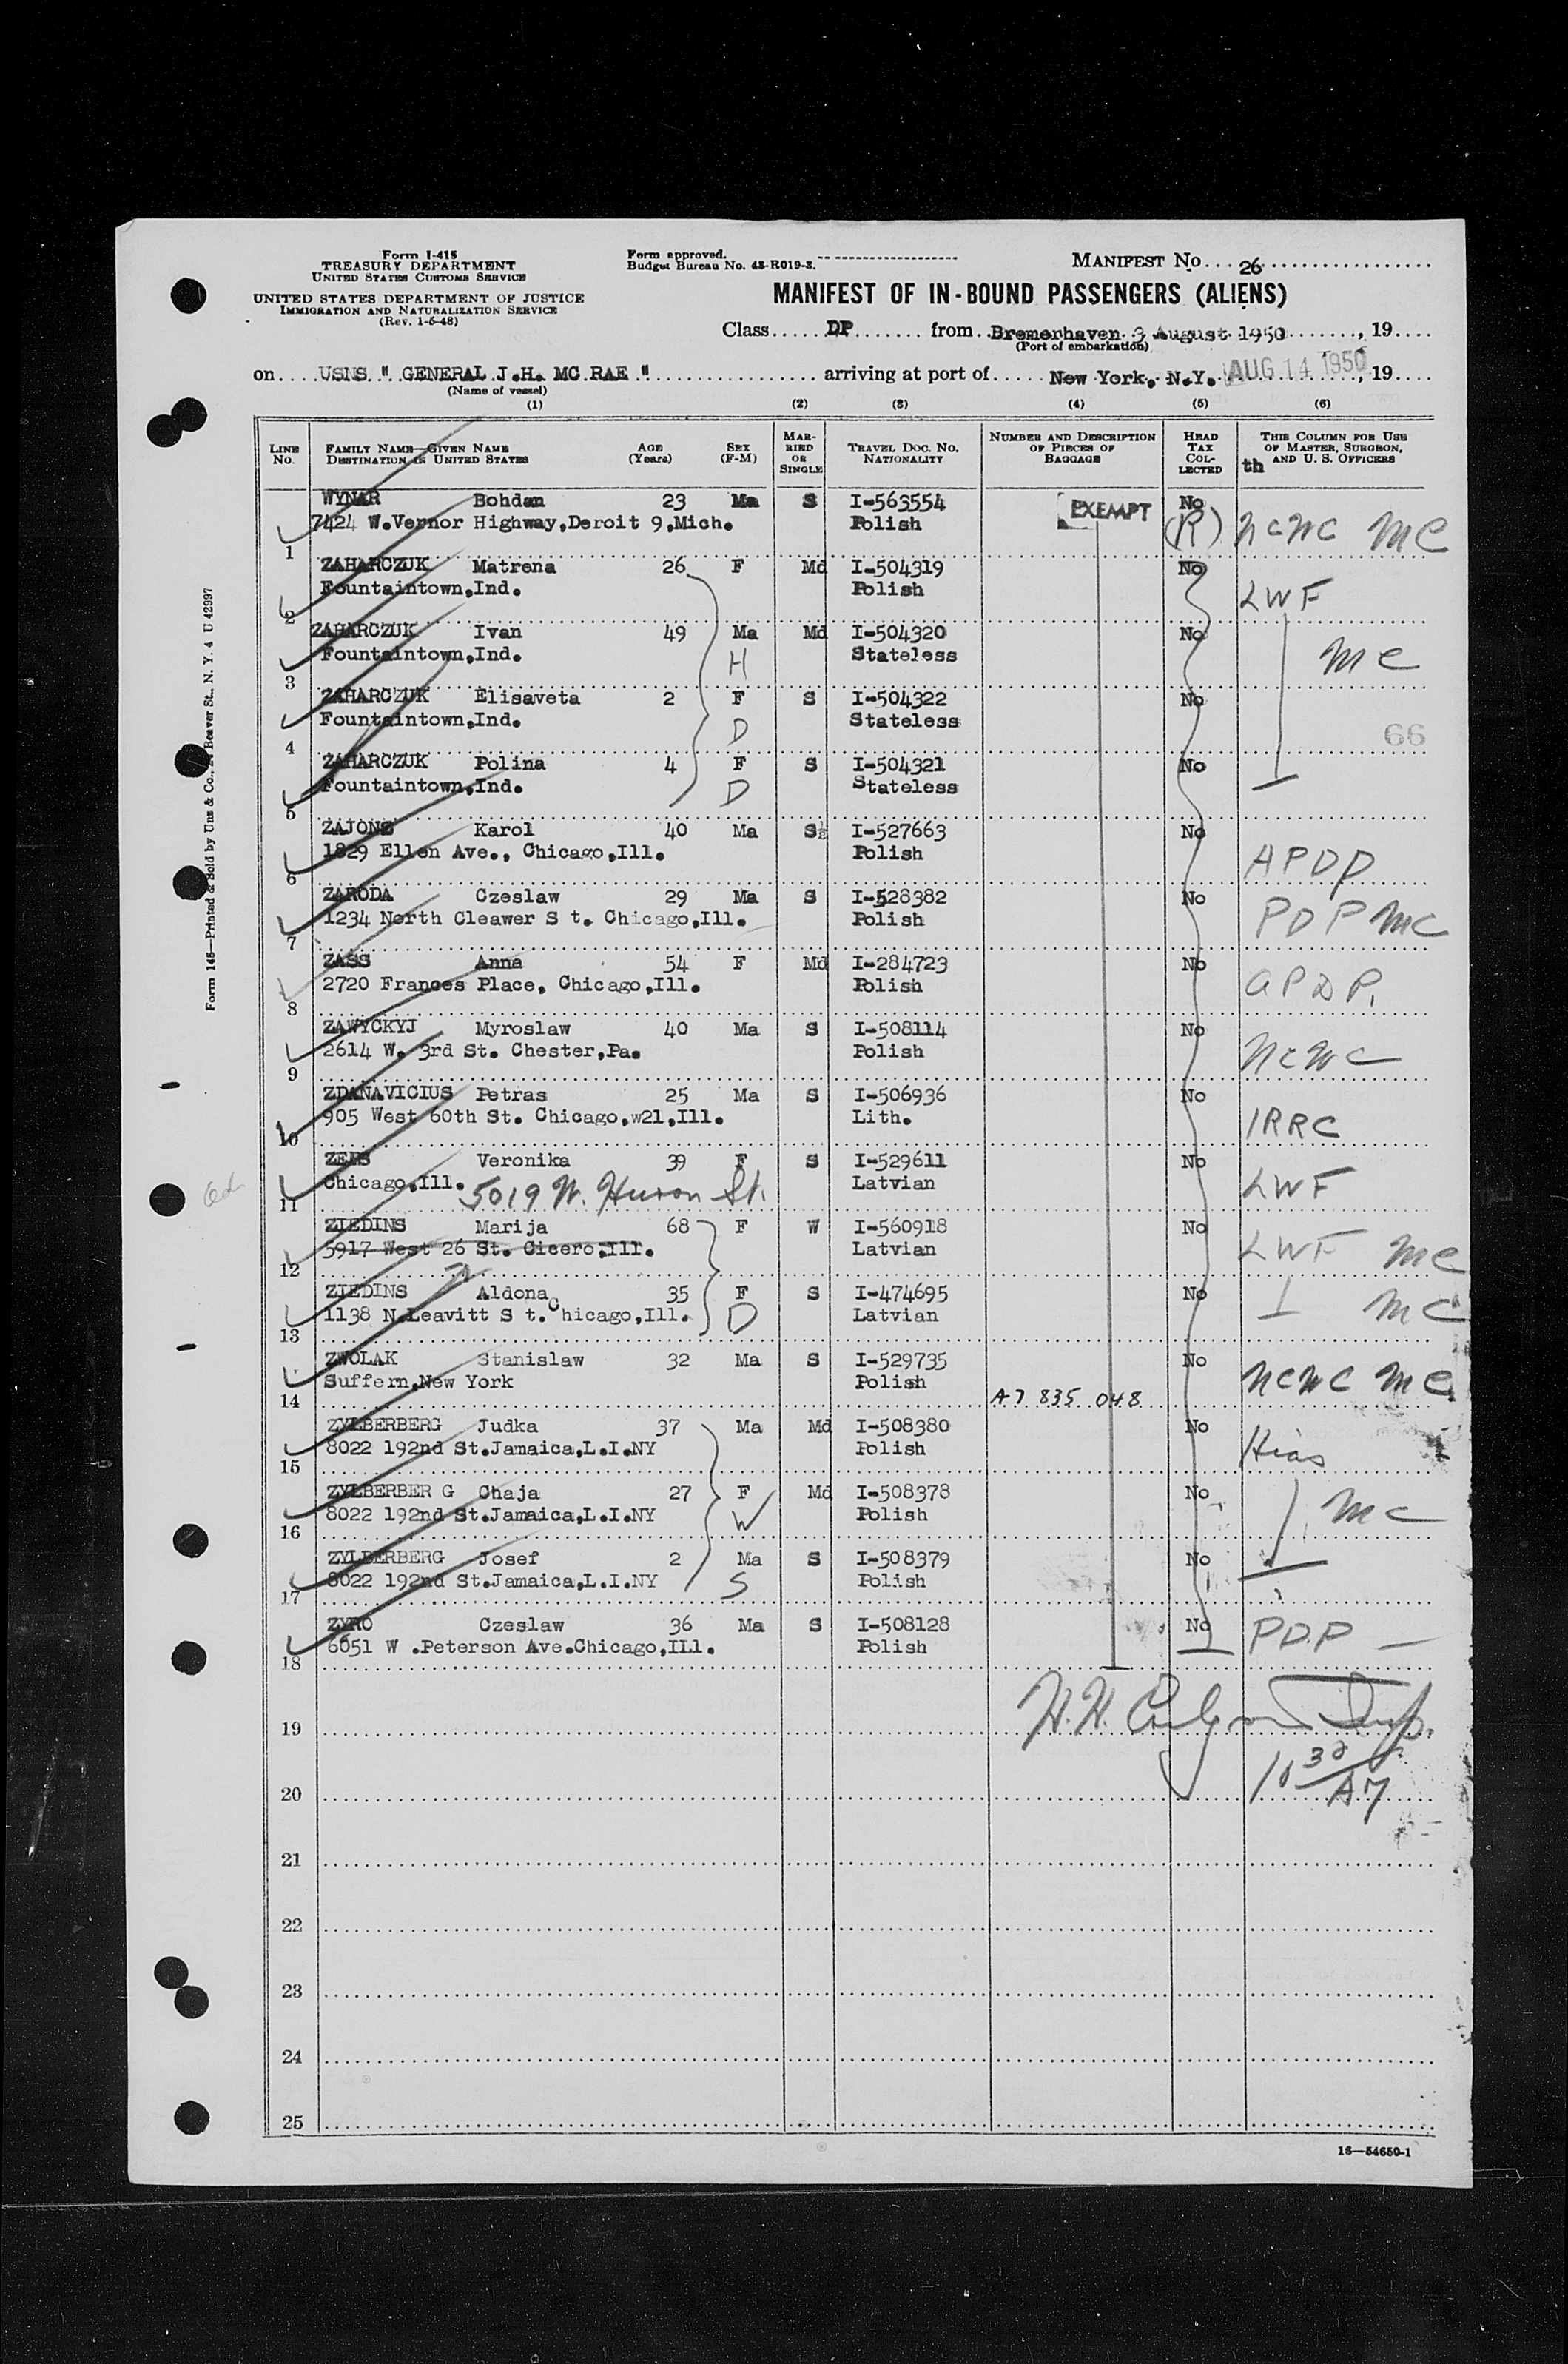 Form I-415
TREASURY DEPARTMENT
UNITED STATES CUSTOMS SERVICE
UNITED STATES DEPARTMENT OF JUSTICE
IMMIGRATION AND NATURALIZATION SERVICE
(Rev. 1-5-48)
Form approved.
Budget Bureau No. 43-R019-3.
MANIFEST NO. 26
MANIFEST OF IN-BOUND PASSENGERS (ALIENS)
Class DP from Bremerhaven 3 August 1950, 19
(Port of embarkation)
on USNS " GENERAL J.H. MC RAE " arriving at port of New York, N.Y. AUG 14 1950, 19
(Name of vessel)
(1) (2) (3) (4) (5) (6)
LINE NO. FAMILY NAME—GIVEN NAME DESTINATION IN UNITED STATES AGE (Years) SEX (F-M) MARRIED OR SINGLE TRAVEL DOC. NO. NATIONALITY NUMBER AND DESCRIPTION OF PIECES OF BAGGAGE HEAD TAX COLLECTED THIS COLUMN FOR USE OF MASTER, SURGEON, AND U. S. OFFICERS
th
WYNAR Bohdan 23 Ma S I-563554 EXEMPT No
7424 W.Vernor Highway,Deroit 9,Mich. Polish (R) NCWC MC
1
ZAHARCZUK Matrena 26 F Md I-504319 No
Fountaintown,Ind. Polish LWF
2
ZAHARCZUK Ivan 49 Ma Md I-504320 No
Fountaintown,Ind. H Stateless MC
3
ZAHARCZUK Elisaveta 2 F S I-504322 No
Fountaintown,Ind. D Stateless 66
4
ZAHARCZUK Polina 4 F S I-504321 No
Fountaintown,Ind. D Stateless
5
ZAJONZ Karol 40 Ma S I-527663 No
1829 Ellen Ave., Chicago,Ill. Polish APDP
6
ZARODA Czeslaw 29 Ma S I-528382 No
1234 North Cleawer S t. Chicago,Ill. Polish PDP MC
7
ZASS Anna 54 F Md I-284723 No
2720 Frances Place, Chicago,Ill. Polish APDP.
8
ZAWYCKYJ Myroslaw 40 Ma S I-508114 No
2614 W. 3rd St. Chester,Pa. Polish NCWC
9
ZDANAVICIUS Petras 25 Ma S I-506936 No
905 West 60th St. Chicago,w21,Ill. Lith. IRRC
10
ZEPS Veronika 39 F S I-529611 No
Chicago,Ill. 5019 W. Huron St. Latvian LWF
11
ZIEDINS Marija 68 F W I-560918 No
5917 West 26 St. Cicero,Ill. Latvian LWF MC
12
ZIEDINS Aldona 35 F S I-474695 No
1138 N.Leavitt S t. Chicago,Ill. D Latvian MC
13
ZWOLAK Stanislaw 32 Ma S I-529735 No
Suffern,New York Polish NCWC MC
14 A7 835 048
ZYLBERBERG Judka 37 Ma Md I-508380 No
8022 192nd St.Jamaica,L.I.NY Polish Hias
15
ZYLBERBER G Chaja 27 F Md I-508378 No
8022 192nd St.Jamaica,L.I.NY W Polish MC
16
ZYLBERBERG Josef 2 Ma S I-508379 No
8022 192nd St.Jamaica,L.I.NY S Polish
17
ZYRO Czeslaw 36 Ma S I-508128 No
6051 W .Peterson Ave.Chicago,Ill. Polish PDP
18
19 H.H. Insp.
20
21
22
23
24
25
16—54650-1
Form 145—Printed & Sold by Unz & Co., Beaver St., N. Y. 4 U 42997